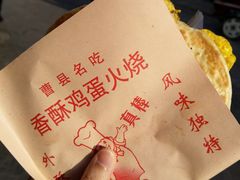 曹县名吃
香酥鸡蛋火烧
风味独特
真棒
外